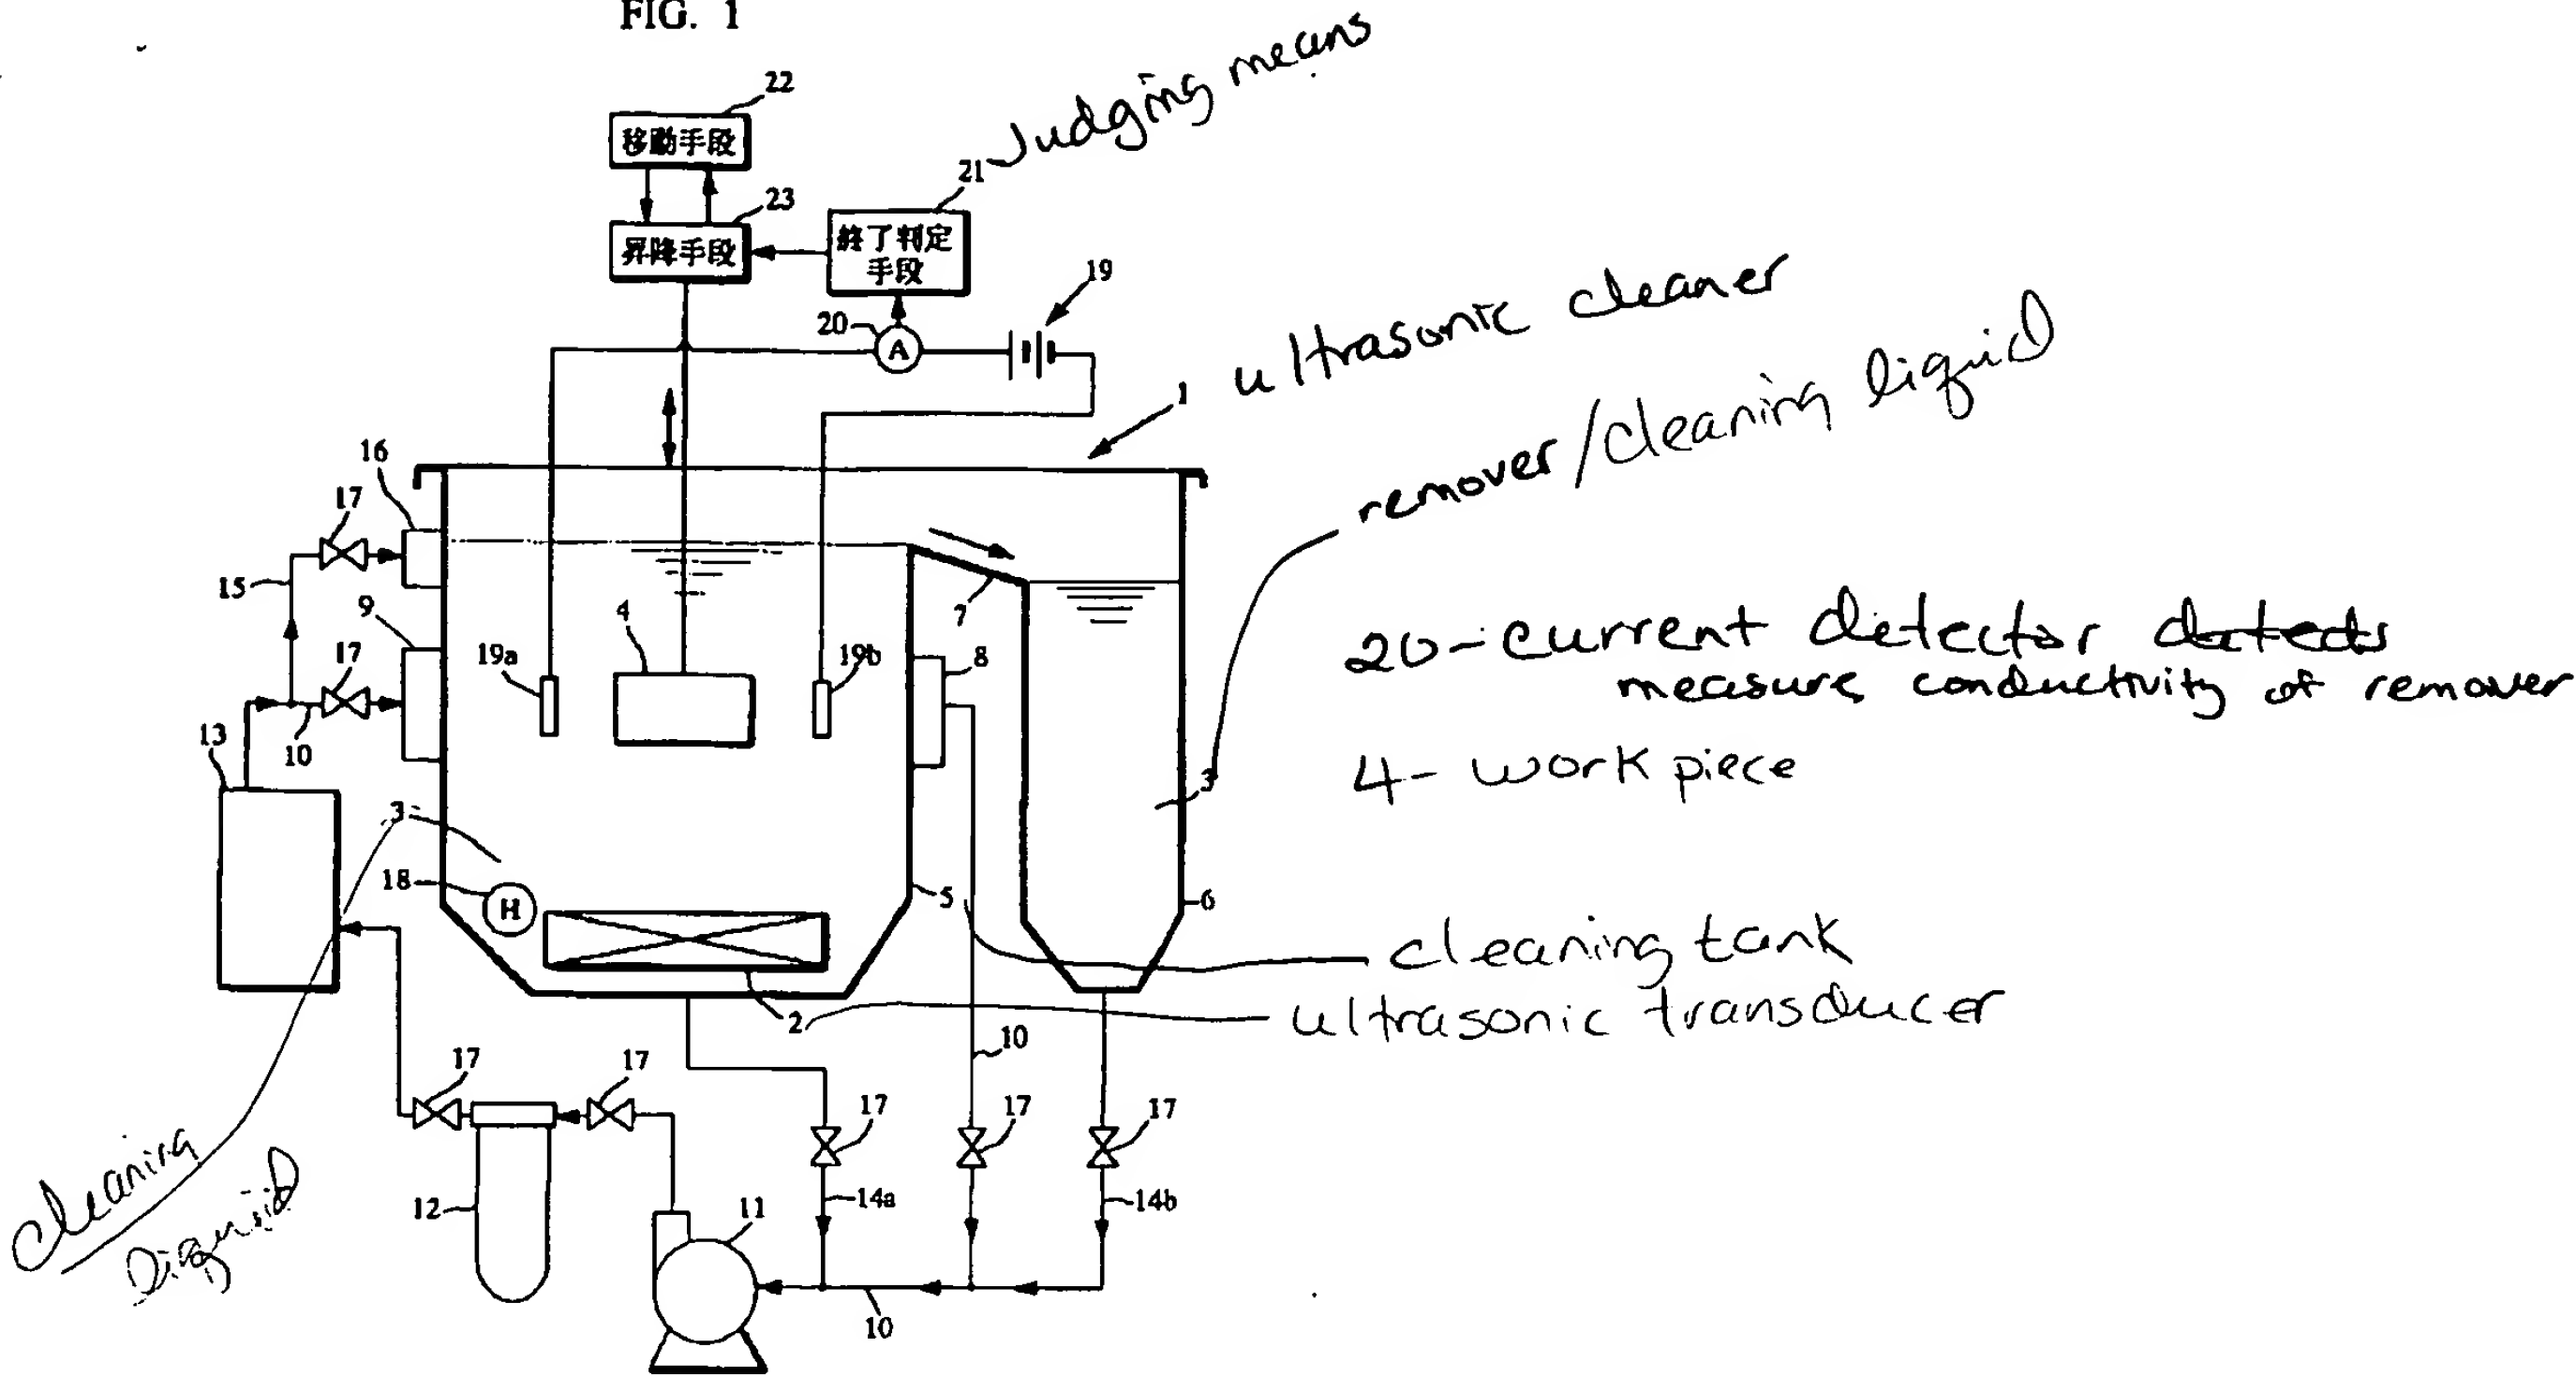 FIG. 1
Judging means
22
移動手段
21
23
昇降手段
終了判定
手段
19
20
A
ultrasonic cleaner
1
remover/cleaning liquid
16
17
15
9
7
4
19a
19b
8
17
20-current detector detects
measure conductivity of remover
10
13
4- work piece
3
3
18
H
5
6
cleaning tank
2
ultrasonic transducer
10
17
17
17
17
17
cleaning
liquid
12
14a
14b
11
10